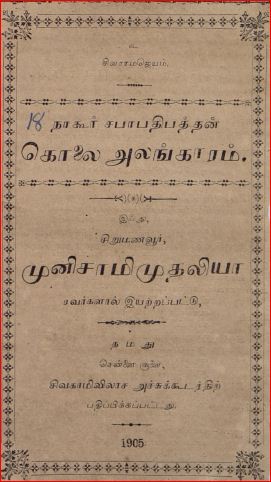 உ
சிவாரமஜெயம்.
18 நாகூர் சபாபதிபத்தன்
கொலை அலங்காரம்.
இஃது,
சிறுமணவூர்,
முனிசாமிமுதலியா
ரவர்களால் இயற்றப்பட்டு,
நமது
சென்னை
சிவகாமிவிலாச அச்சுக்கூடத்திற்
பதிப்பிக்கப்பட்டது.
1905